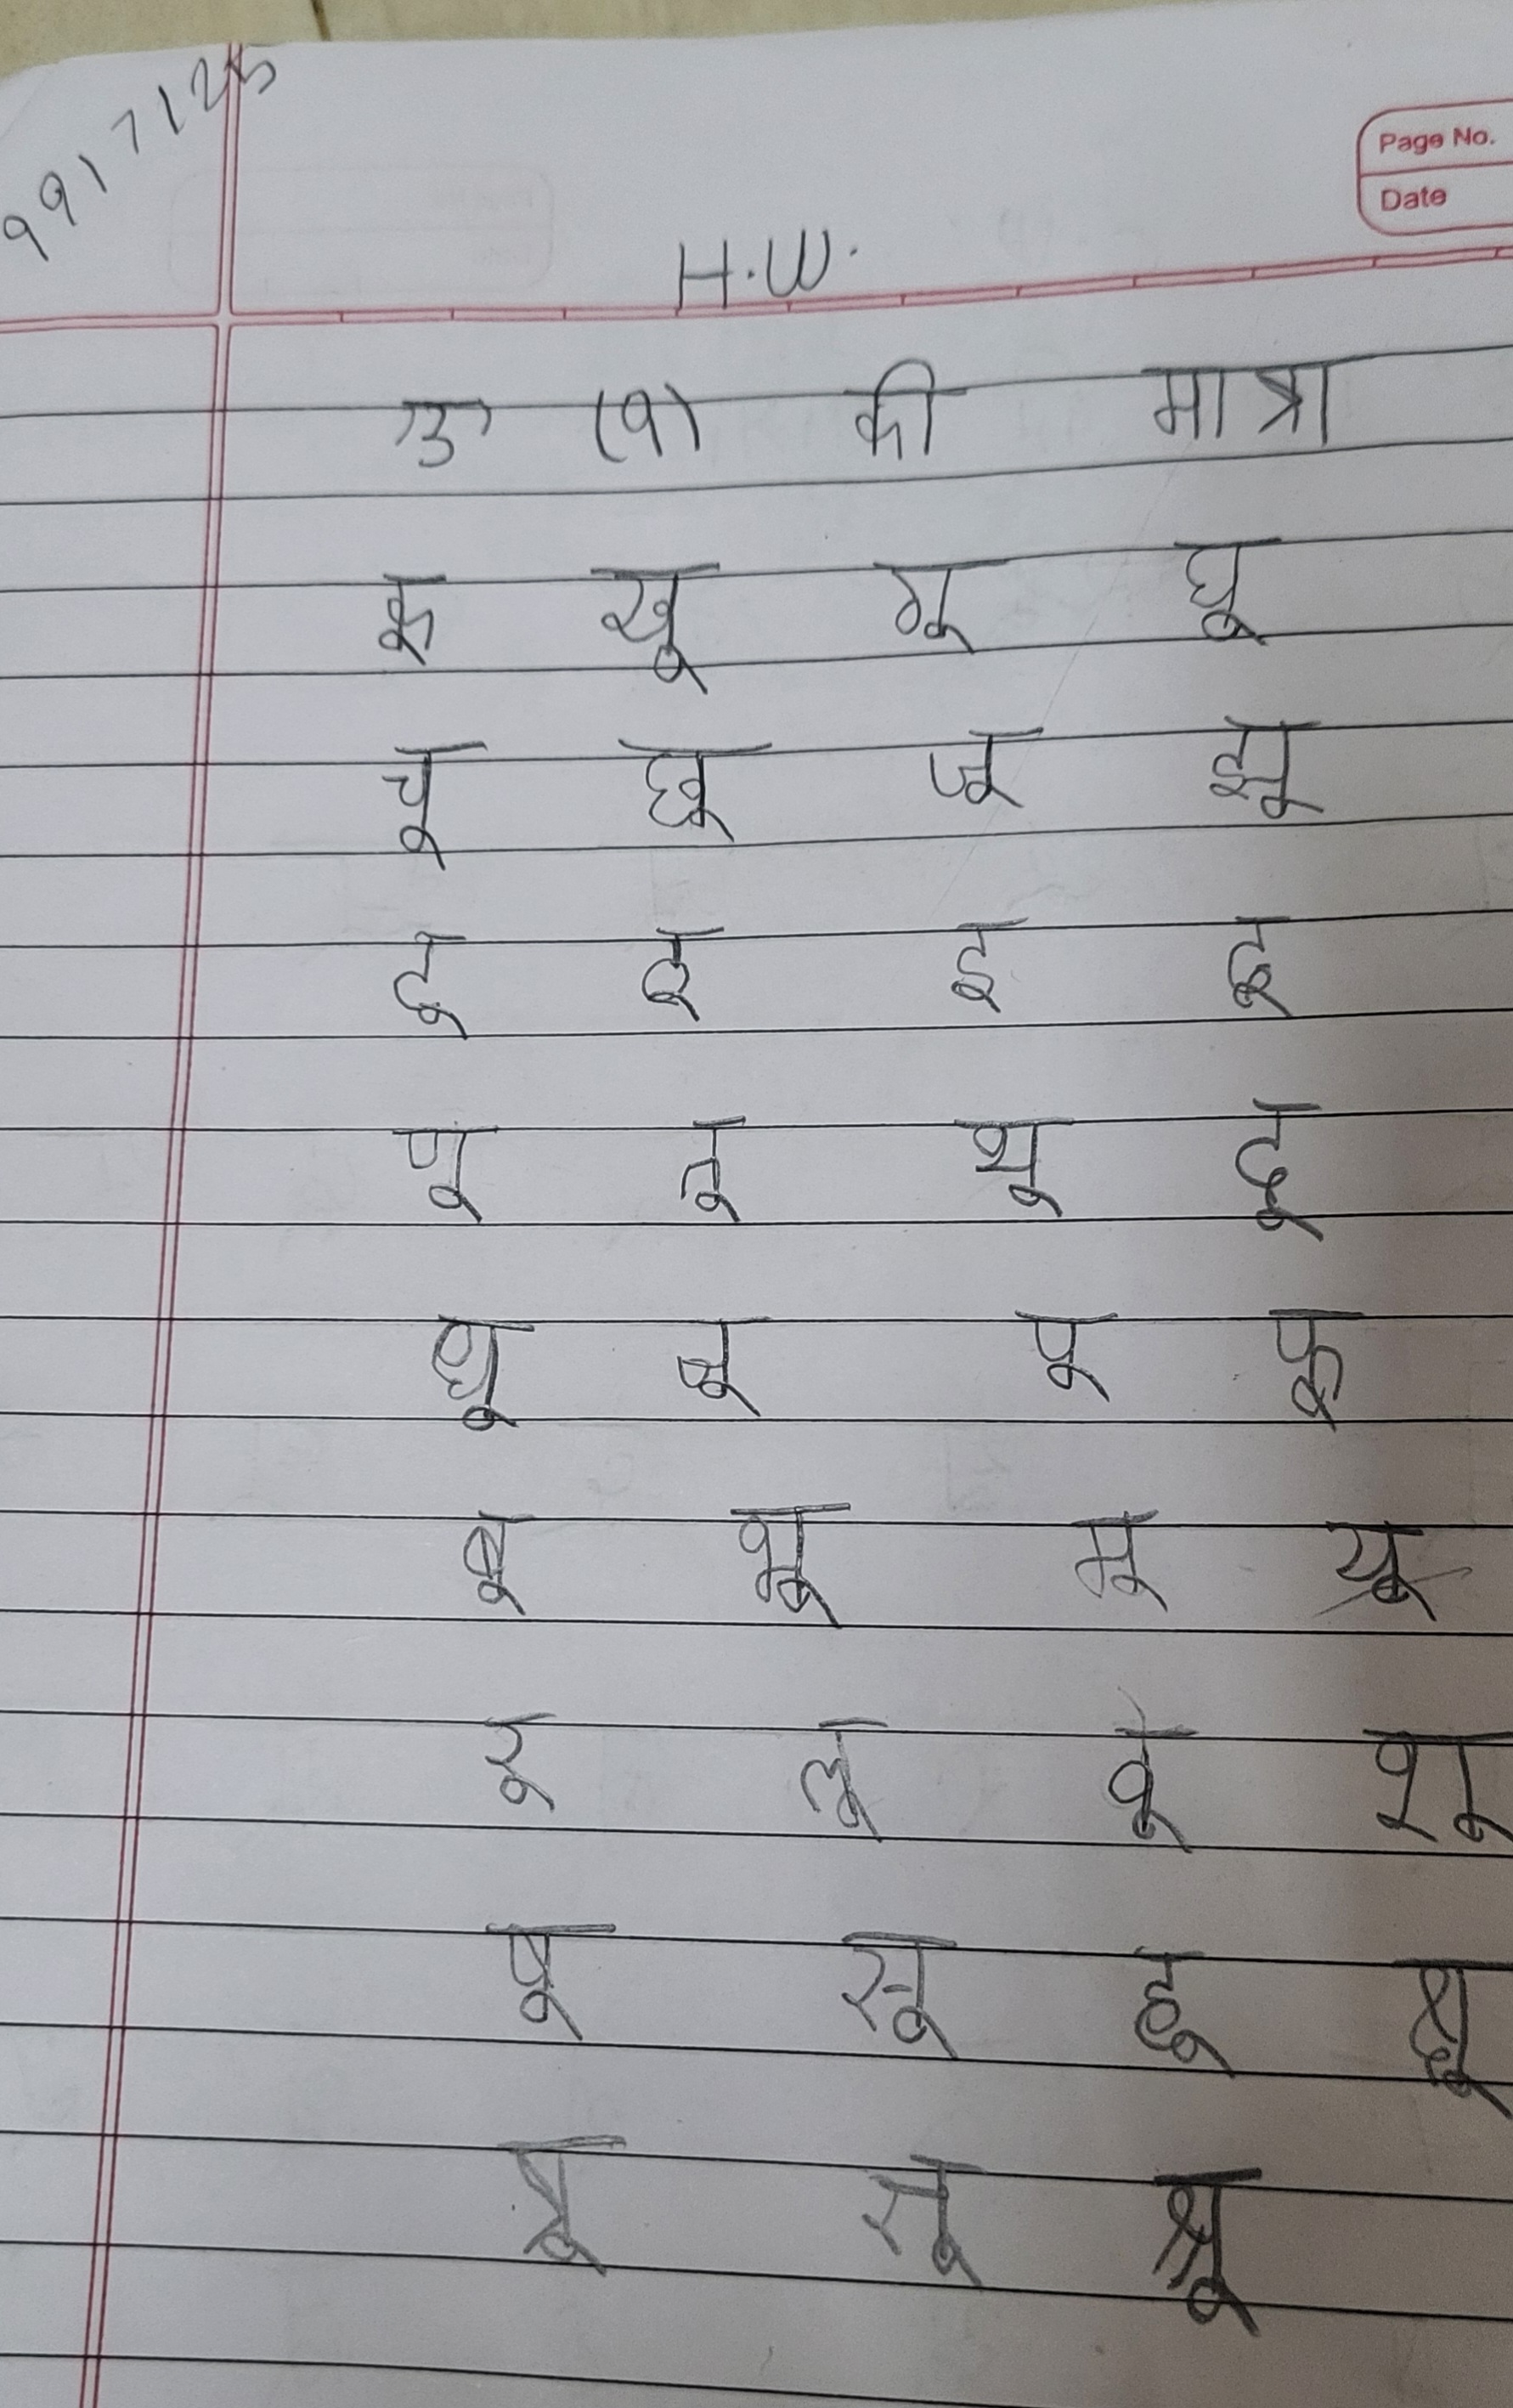 9917125
Page No.
Date
H.W.
ऊ (ू) की मात्रा
कू खू गू घू
चू छू जू झू
टू ठू डू ढू
णू तू थू दू
धू नू पू फू
बू भू मू यू
रू लू वू शू
षू सू हू क्षू
त्रू श्रू